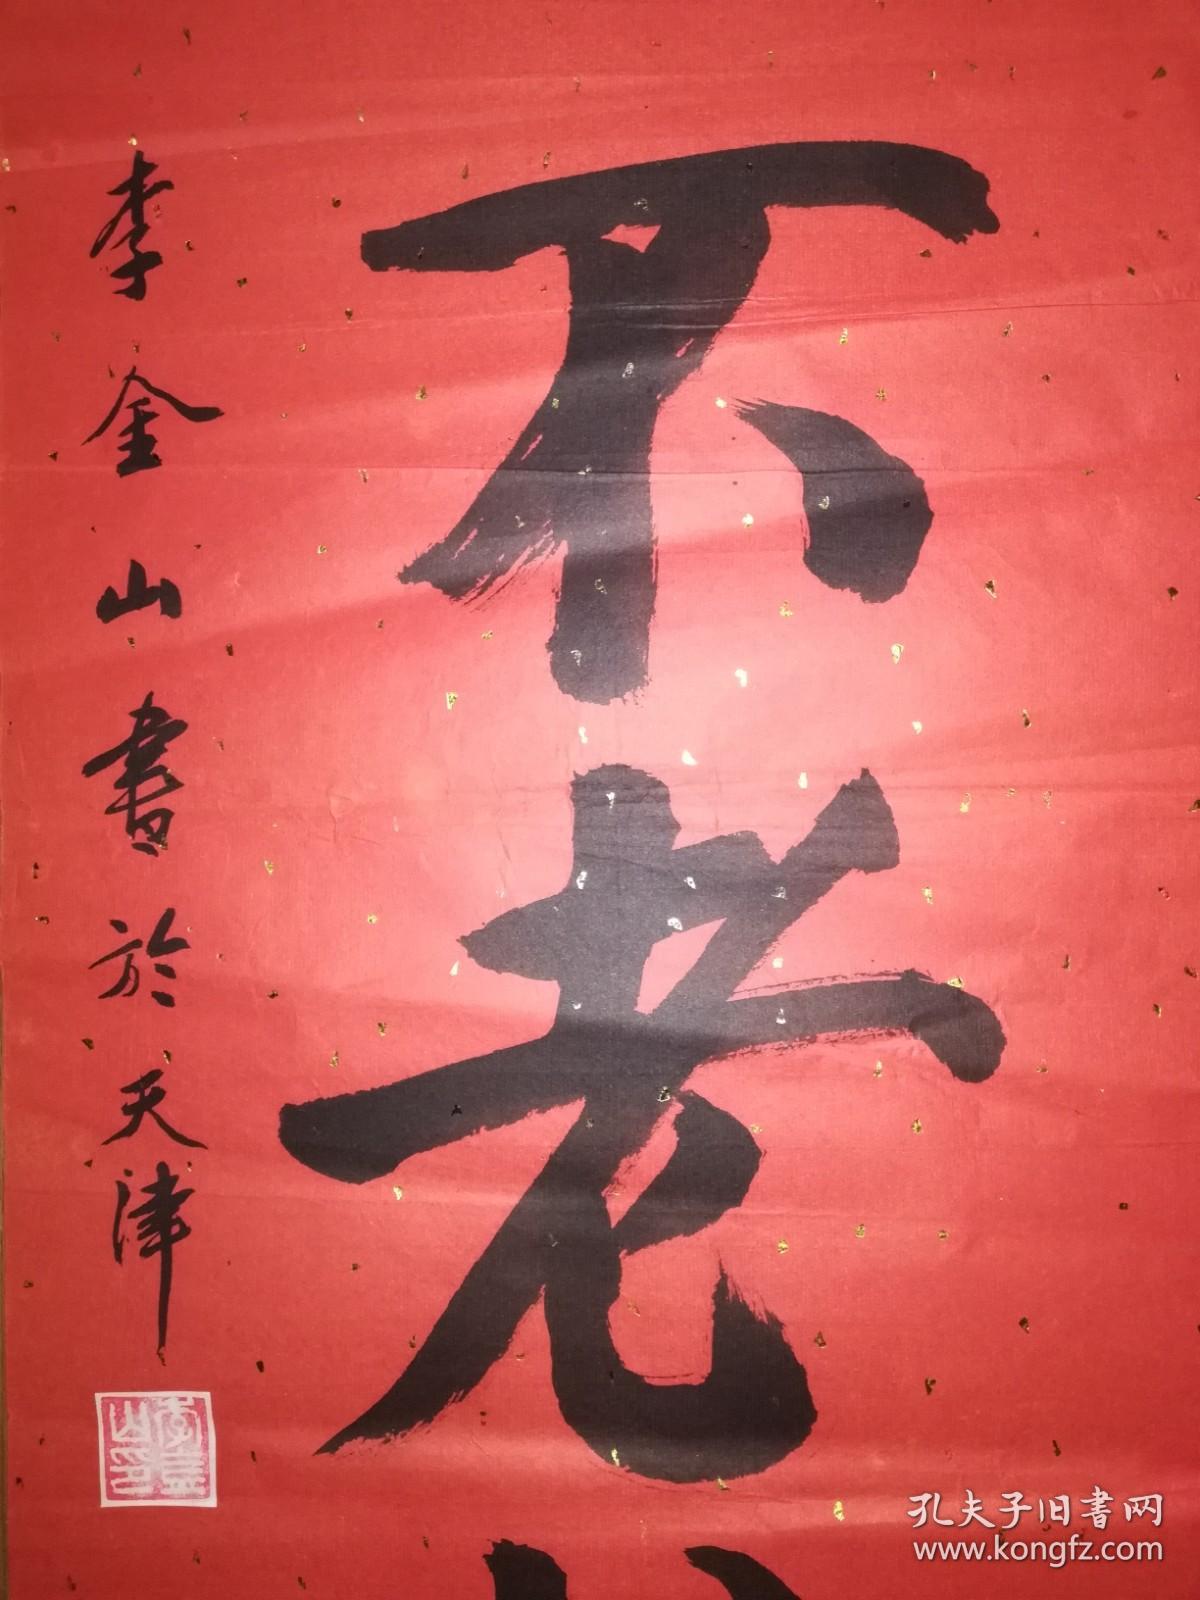 不老
李金山書於天津
孔夫子旧书网
www.kongfz.com